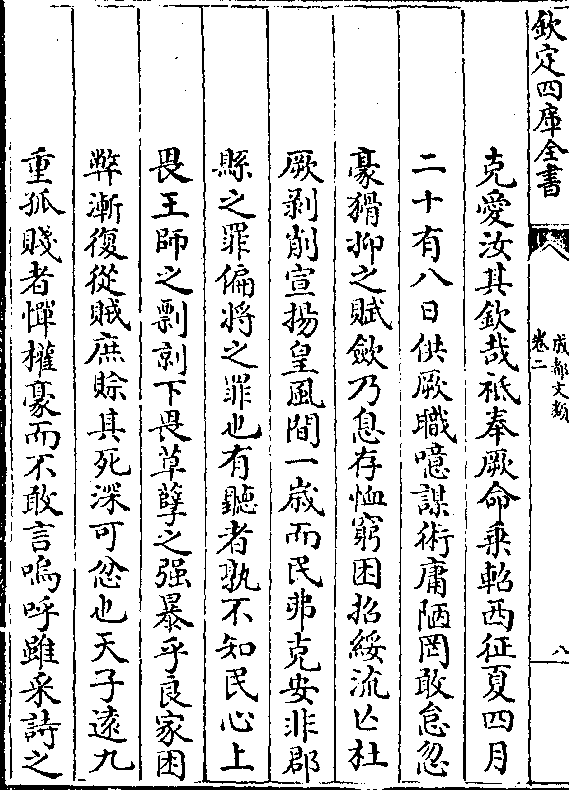 欽定四庫全書
成都文類
卷二
八
克愛汝其欽哉祇奉厥命乗軺西征夏四月
二十有八日供厥職噫謀術庸陋罔敢怠忽
豪猾抑之賦斂乃息存恤窮困招綏流亾杜
厥剥削宣揚皇風間一歳而民弗克安非郡
縣之罪偏將之罪也有聽者孰不知民心上
畏王師之剽剠下畏草孽之强暴乎良家困
弊漸復從賊庶賒其死深可忿也天子逺九
重孤賤者憚權豪而不敢言嗚呼雖采詩之